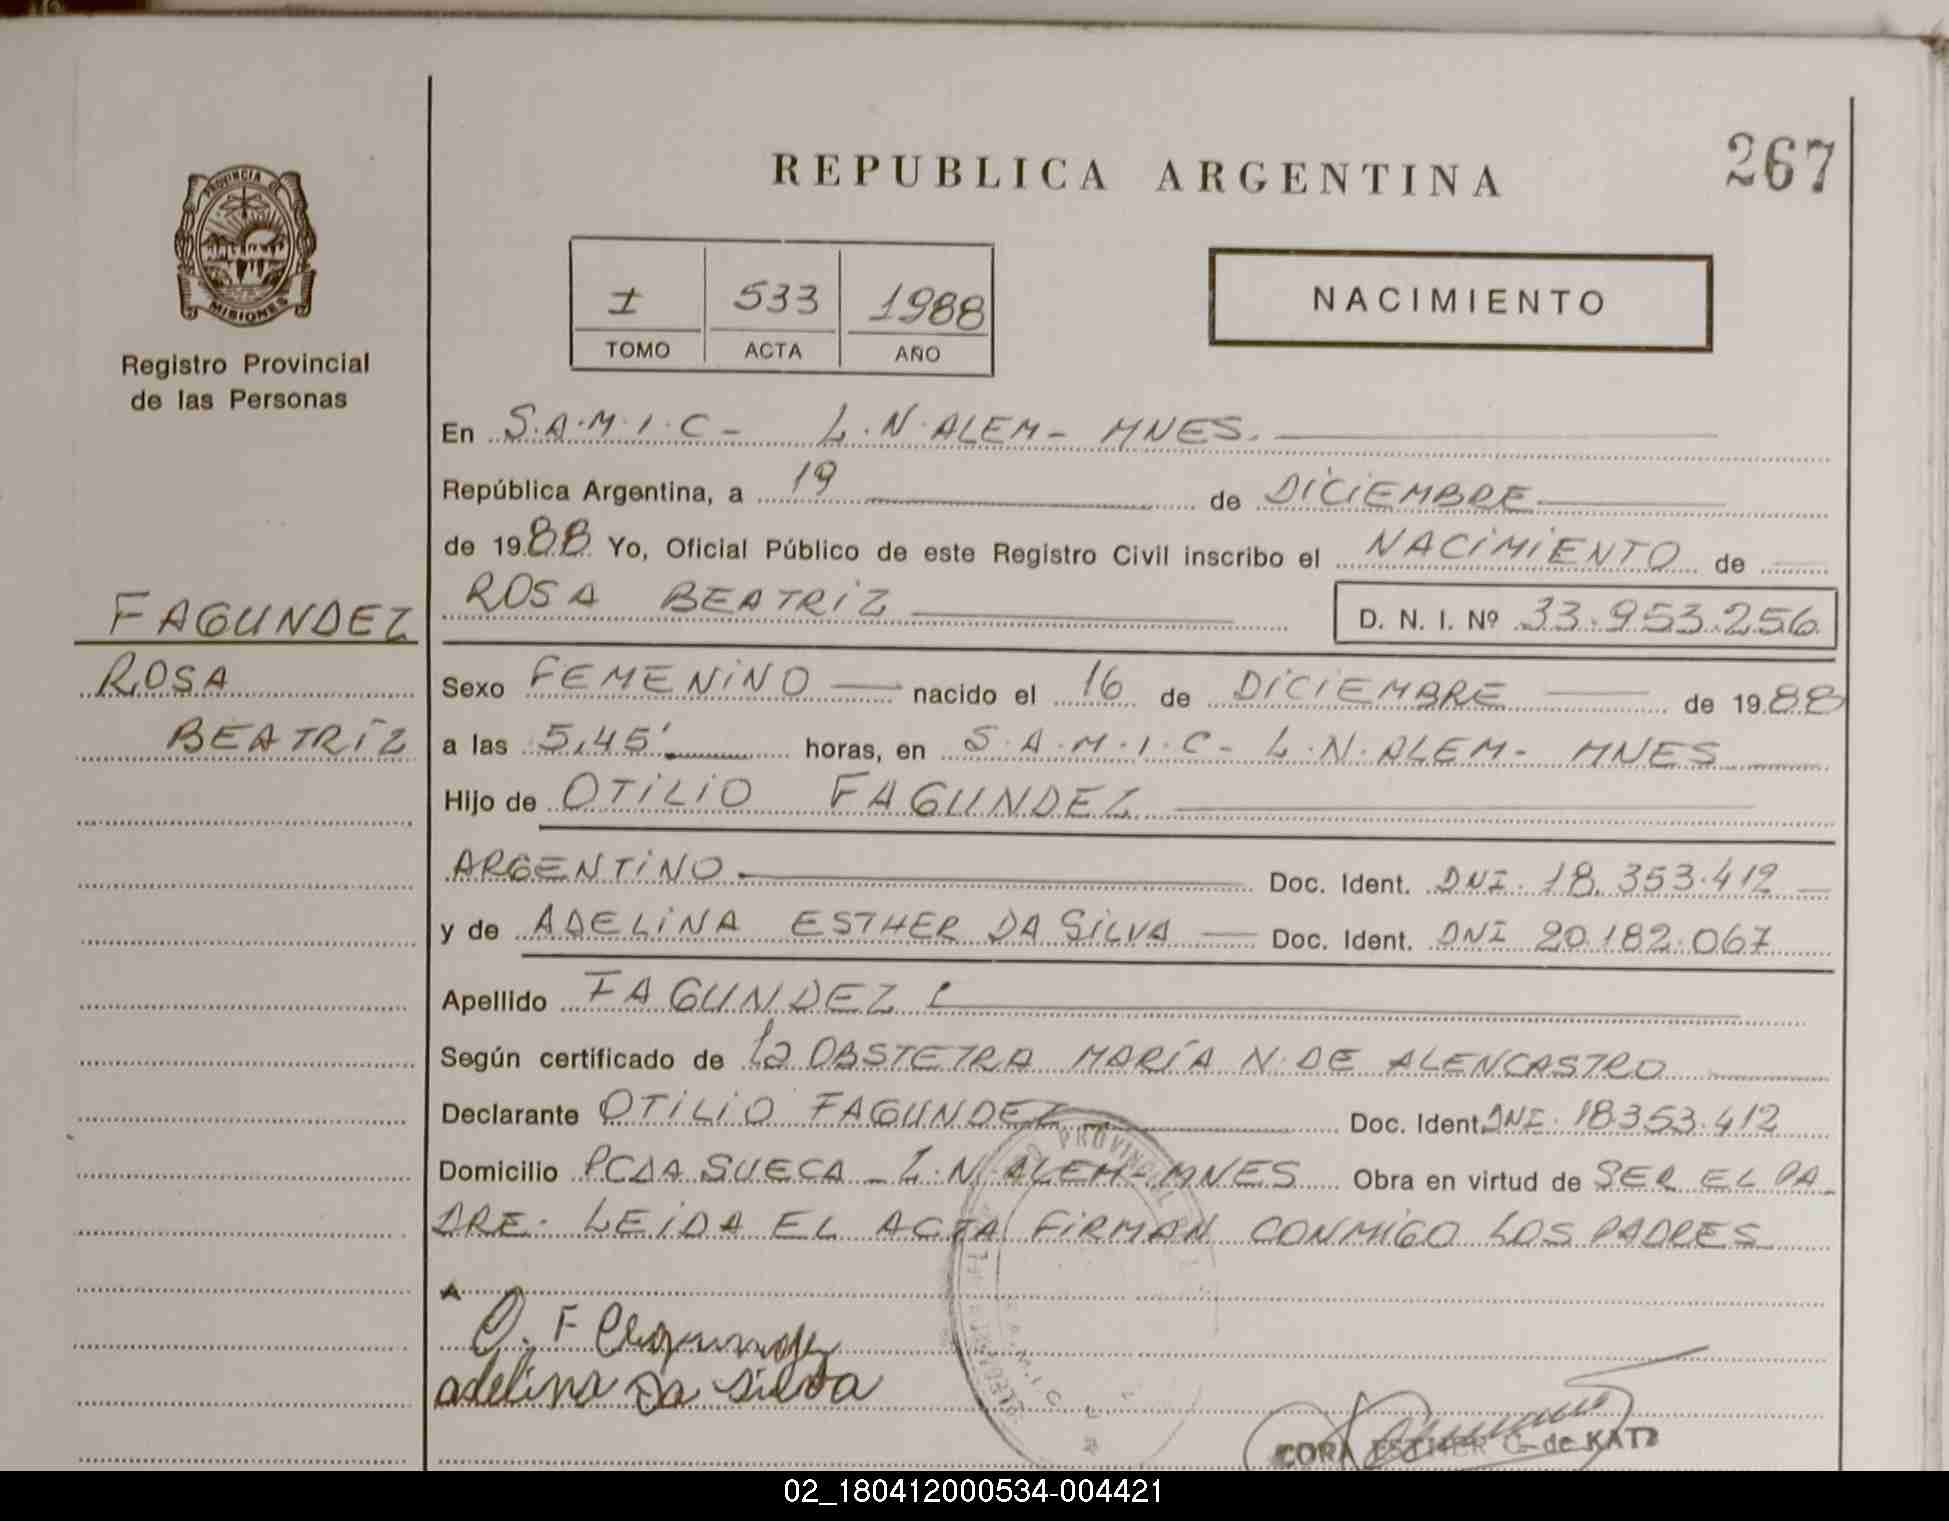 267
REPUBLICA ARGENTINA
PROVINCIA DE
MISIONES
Registro Provincial
de las Personas
I 533 1988
TOMO ACTA AÑO
NACIMIENTO
En S.A.M.I.C - L.N.ALEM - MNES.
República Argentina, a 19 de DICIEMBRE
de 1988 Yo, Oficial Público de este Registro Civil inscribo el NACIMIENTO de
ROSA BEATRIZ D. N. I. Nº 33.953.256
FAGUNDEZ
ROSA
BEATRIZ
Sexo FEMENINO nacido el 16 de DICIEMBRE de 1988
a las 5,45' horas, en S.A.M.I.C - L.N.ALEM - MNES
Hijo de OTILIO FAGUNDEZ
ARGENTINO Doc. Ident. DNI. 18.353.412
y de ADELINA ESTHER DA SILVA Doc. Ident. DNI 20.182.067
Apellido FAGUNDEZ
Según certificado de la OBSTETRA MARÍA N. DE ALENCASTRO
Declarante OTILIO FAGUNDEZ Doc. Ident. DNI. 18.353.412
Domicilio PCDA SUECA - L.N.ALEM - MNES Obra en virtud de SER EL PA-
DRE. LEIDA EL ACTA FIRMAN CONMIGO LOS PADRES
O. F
adelina Da Silva
CORA ESTHER G. de KATZ
02_180412000534-004421